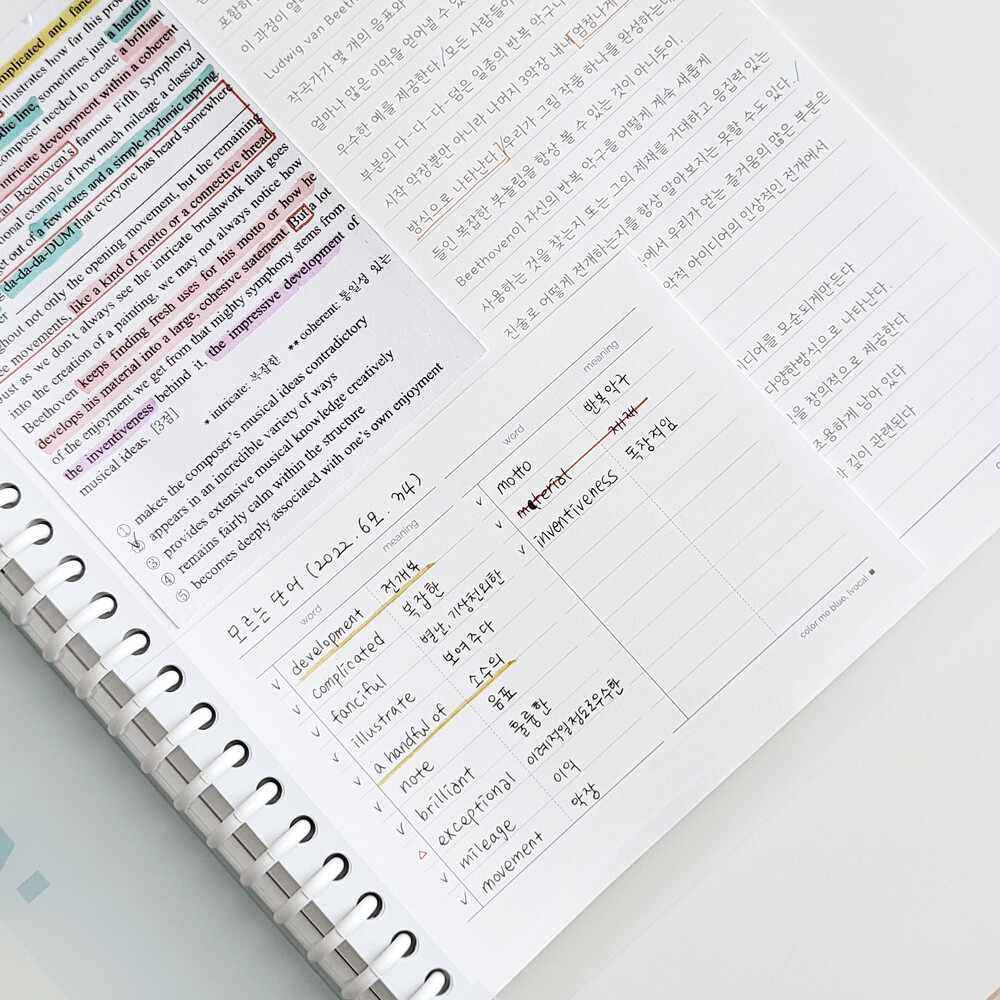 mplicated and fanc
illustrates how far this pro
the line, sometimes just a handfu
omposer needed to create a brillian
intricate development within a coherent
an Beethoven's famous Fifth Symphony
ional example of how much mileage a classical
et out of a few notes and a simple rhythmic tapping.
da-da-da-DUM that everyone has heard somewhere
ghout not only the opening movement, but the remaining
ee movements, like a kind of motto or a connective thread.
ust as we don't always see the intricate brushwork that goes
into the creation of a painting, we may not always notice how
Beethoven keeps finding fresh uses for his motto or how he
develops his material into a large, cohesive statement. But a lot
of the enjoyment we get from that mighty symphony stems from
the inventiveness behind it, the impressive development of
musical ideas. [3점]
*intricate: 복잡한 **coherent: 통일성 있는
① makes the composer's musical ideas contradictory
② appears in an incredible variety of ways
③ provides extensive musical knowledge creatively
④ remains fairly calm within the structure
⑤ becomes deeply associated with one's own enjoyment
이 과정이 얼
Ludwig van Beeth
작곡가가 몇 개의 음표와
얼마나 많은 이익을 얻어낼 수 있
우수한 예를 제공한다/모든 사람들이
부분의 다-다-다-덤은 일종의 반복 악구나
시작 악장뿐만 아니라 나머지 3악장 내내 엄청나게
방식으로 나타난다./우리가 그림 작품 하나를 완성하는데
들인 복잡한 붓놀림을 항상 볼 수 있는 것이 아니듯이,
Beethoven이 자신의 반복 악구를 어떻게 계속 새롭게
사용하는 것을 찾는지 또는 그의 제재를 거대하고 응집력 있는
진술로 어떻게 전개하는지를 항상 알아보지는 못할 수도 있다./
에서 우리가 얻는 즐거움의 많은 부분은
악적 아이디어의 인상적인 전개에서
디어를 모순되게만든다
다양한방식으로 나타난다.
을 창의적으로 제공한다
조용하게 남아 있다
깊이 관련된다
모르는 단어 (2022. 6월. 34)
word meaning
development 전개부
complicated 복잡한
fanciful 별난, 기상천외한
illustrate 보여주다
a handful of 소수의
note 음표
brilliant 훌륭한
exceptional 이례적일정도로우수한
mileage 이익
movement 악장
word meaning
motto 반복악구
material 제재
inventiveness 독창적임
color me blue, Ivocal